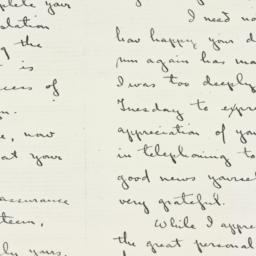 plete your
slation
g the
is
cess of
n.
e, now
at your
assurance
teem,
ly yours,
I need no
how happy your d
run again has ma
I was too deeply
Tuesday to expre
appreciation of you
in telephoning to
good news yourse
very grateful.
While I appre
the great personal